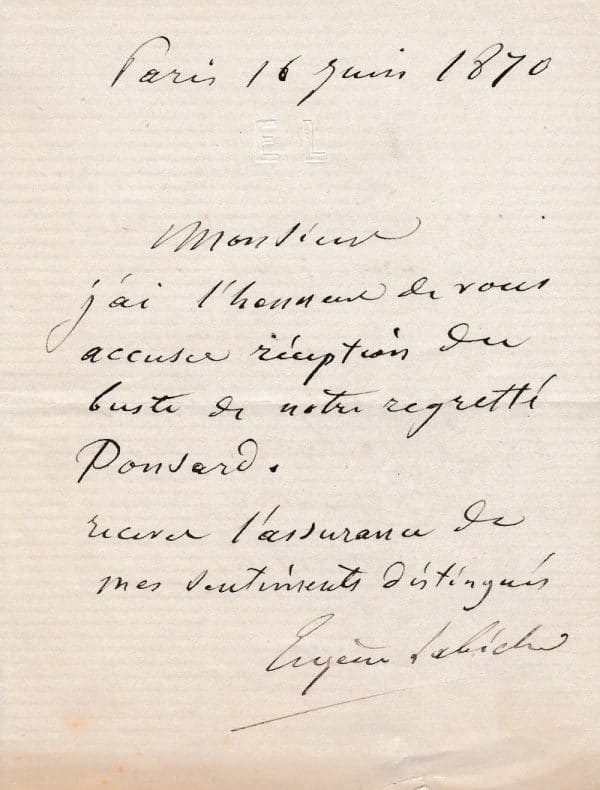 Paris 16 juin 1870
E L
Monsieur
j'ai l'honneur de vous
accuser réception du
buste de notre regretté
Ponsard.
recevez l'assurance de
mes sentiments distingués
Eugène Labiche